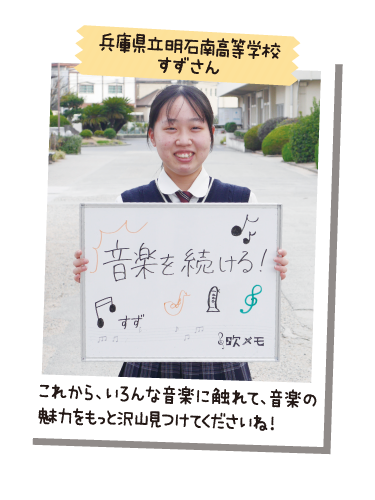 兵庫県立明石南高等学校
すずさん
音楽を続ける！
すず
吹メモ
これから、いろんな音楽に触れて、音楽の
魅力をもっと沢山見つけてくださいね！